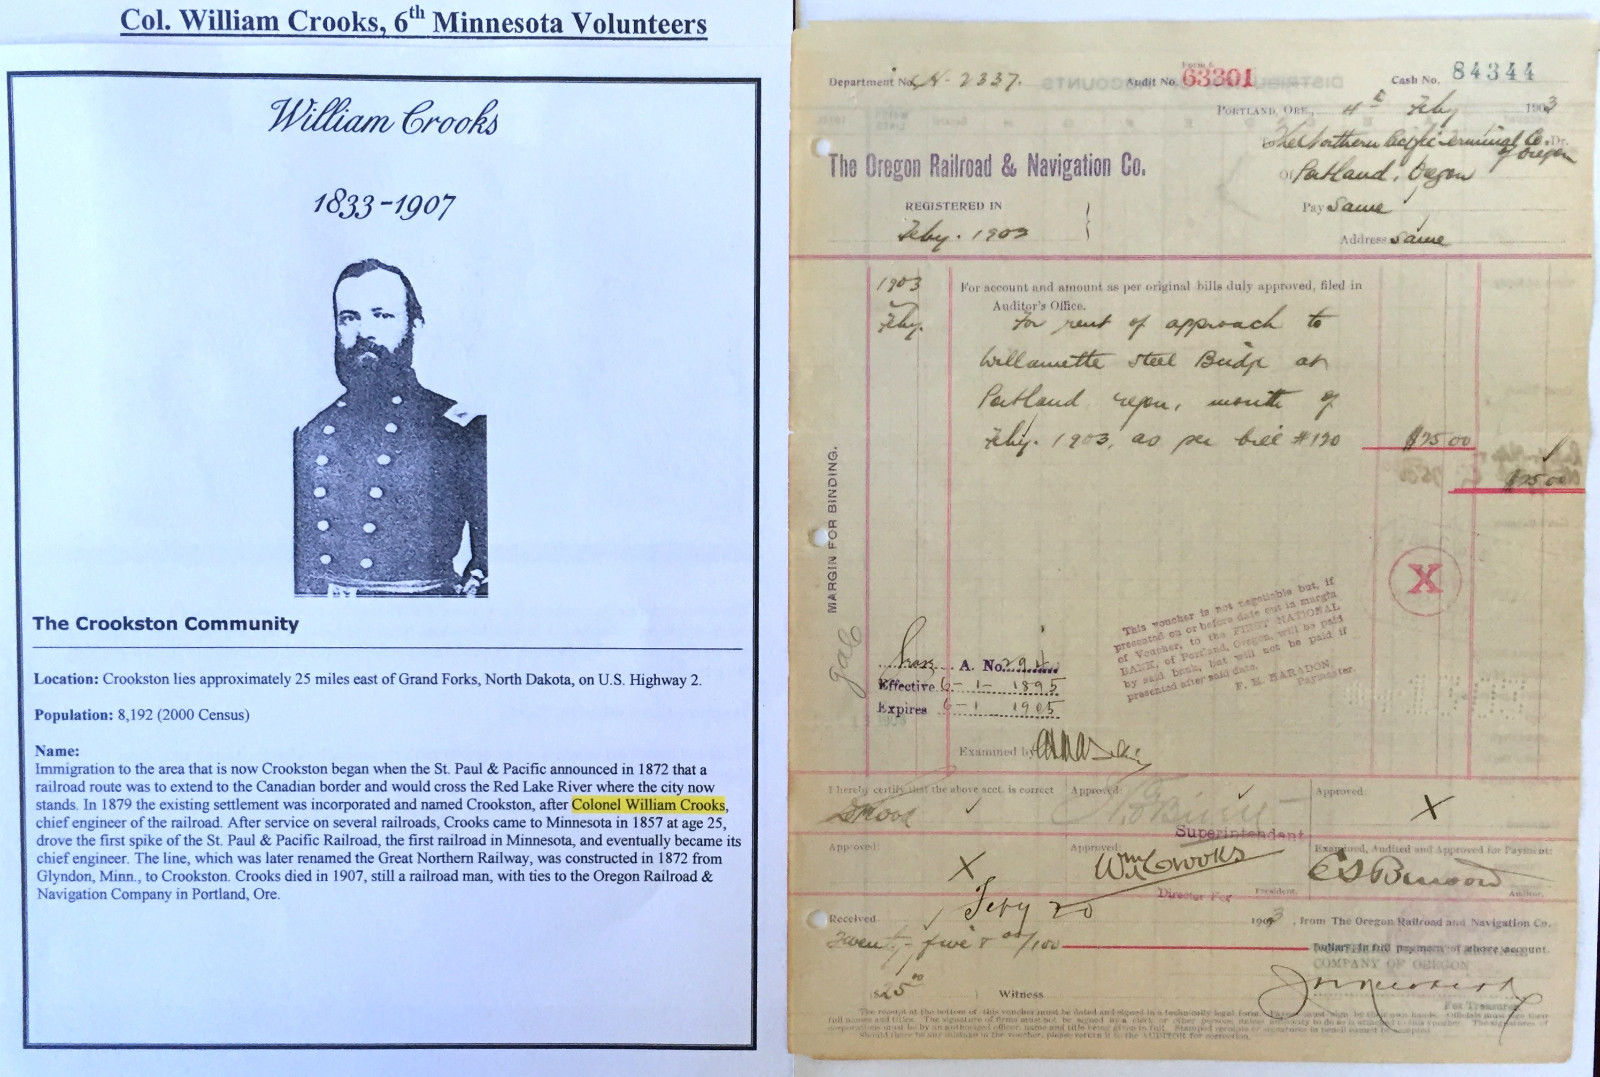 Col. William Crooks, 6th Minnesota Volunteers
William Crooks
1833-1907
The Crookston Community
Location: Crookston lies approximately 25 miles east of Grand Forks, North Dakota, on U.S. Highway 2.
Population: 8,192 (2000 Census)
Name:
Immigration to the area that is now Crookston began when the St. Paul & Pacific announced in 1872 that a
railroad route was to extend to the Canadian border and would cross the Red Lake River where the city now
stands. In 1879 the existing settlement was incorporated and named Crookston, after Colonel William Crooks,
chief engineer of the railroad. After service on several railroads, Crooks came to Minnesota in 1857 at age 25,
drove the first spike of the St. Paul & Pacific Railroad, the first railroad in Minnesota, and eventually became its
chief engineer. The line, which was later renamed the Great Northern Railway, was constructed in 1872 from
Glyndon, Minn., to Crookston. Crooks died in 1907, still a railroad man, with ties to the Oregon Railroad &
Navigation Company in Portland, Ore.
Department No. 2337.
Audit No. 63301
Cash No. 84344
PORTLAND, ORE., 4th Feby 1903
To The Northern Pacific Terminal Co. Dr.
of Oregon
Of Portland, Oregon
The Oregon Railroad & Navigation Co.
REGISTERED IN
Feby. 1903
Pay Same
Address Same
1903
Feby.
For account and amount as per original bills duly approved, filed in
Auditor's Office.
For rent of approach to
Willamette Steel Bridge at
Portland, month of
Feby. 1903, as per bill #120 $25.00
$25.00
MARGIN FOR BINDING.
X
This voucher is not negotiable but, if
presented on or before date cut in margin
of Voucher, to the FIRST NATIONAL
BANK, of Portland, Oregon, will be paid
by said bank, but will not be paid if
presented after said date.
Paymaster.
A. No. 294
Effective 6-1-1895
Expires 6-1 1905
Examined by
I hereby certify that the above acct. is correct
Approved:
Superintendent
Approved:
X
Approved:
X
Approved:
Wm Crooks
Director For President.
Examined, Audited and Approved for Payment:
Auditor.
Received Feby 20 1903, from The Oregon Railroad and Navigation Co.
Twenty-five & 00/100 Dollars, in full payment of above account.
COMPANY OF OREGON
$25.00
Witness
For Treasurer